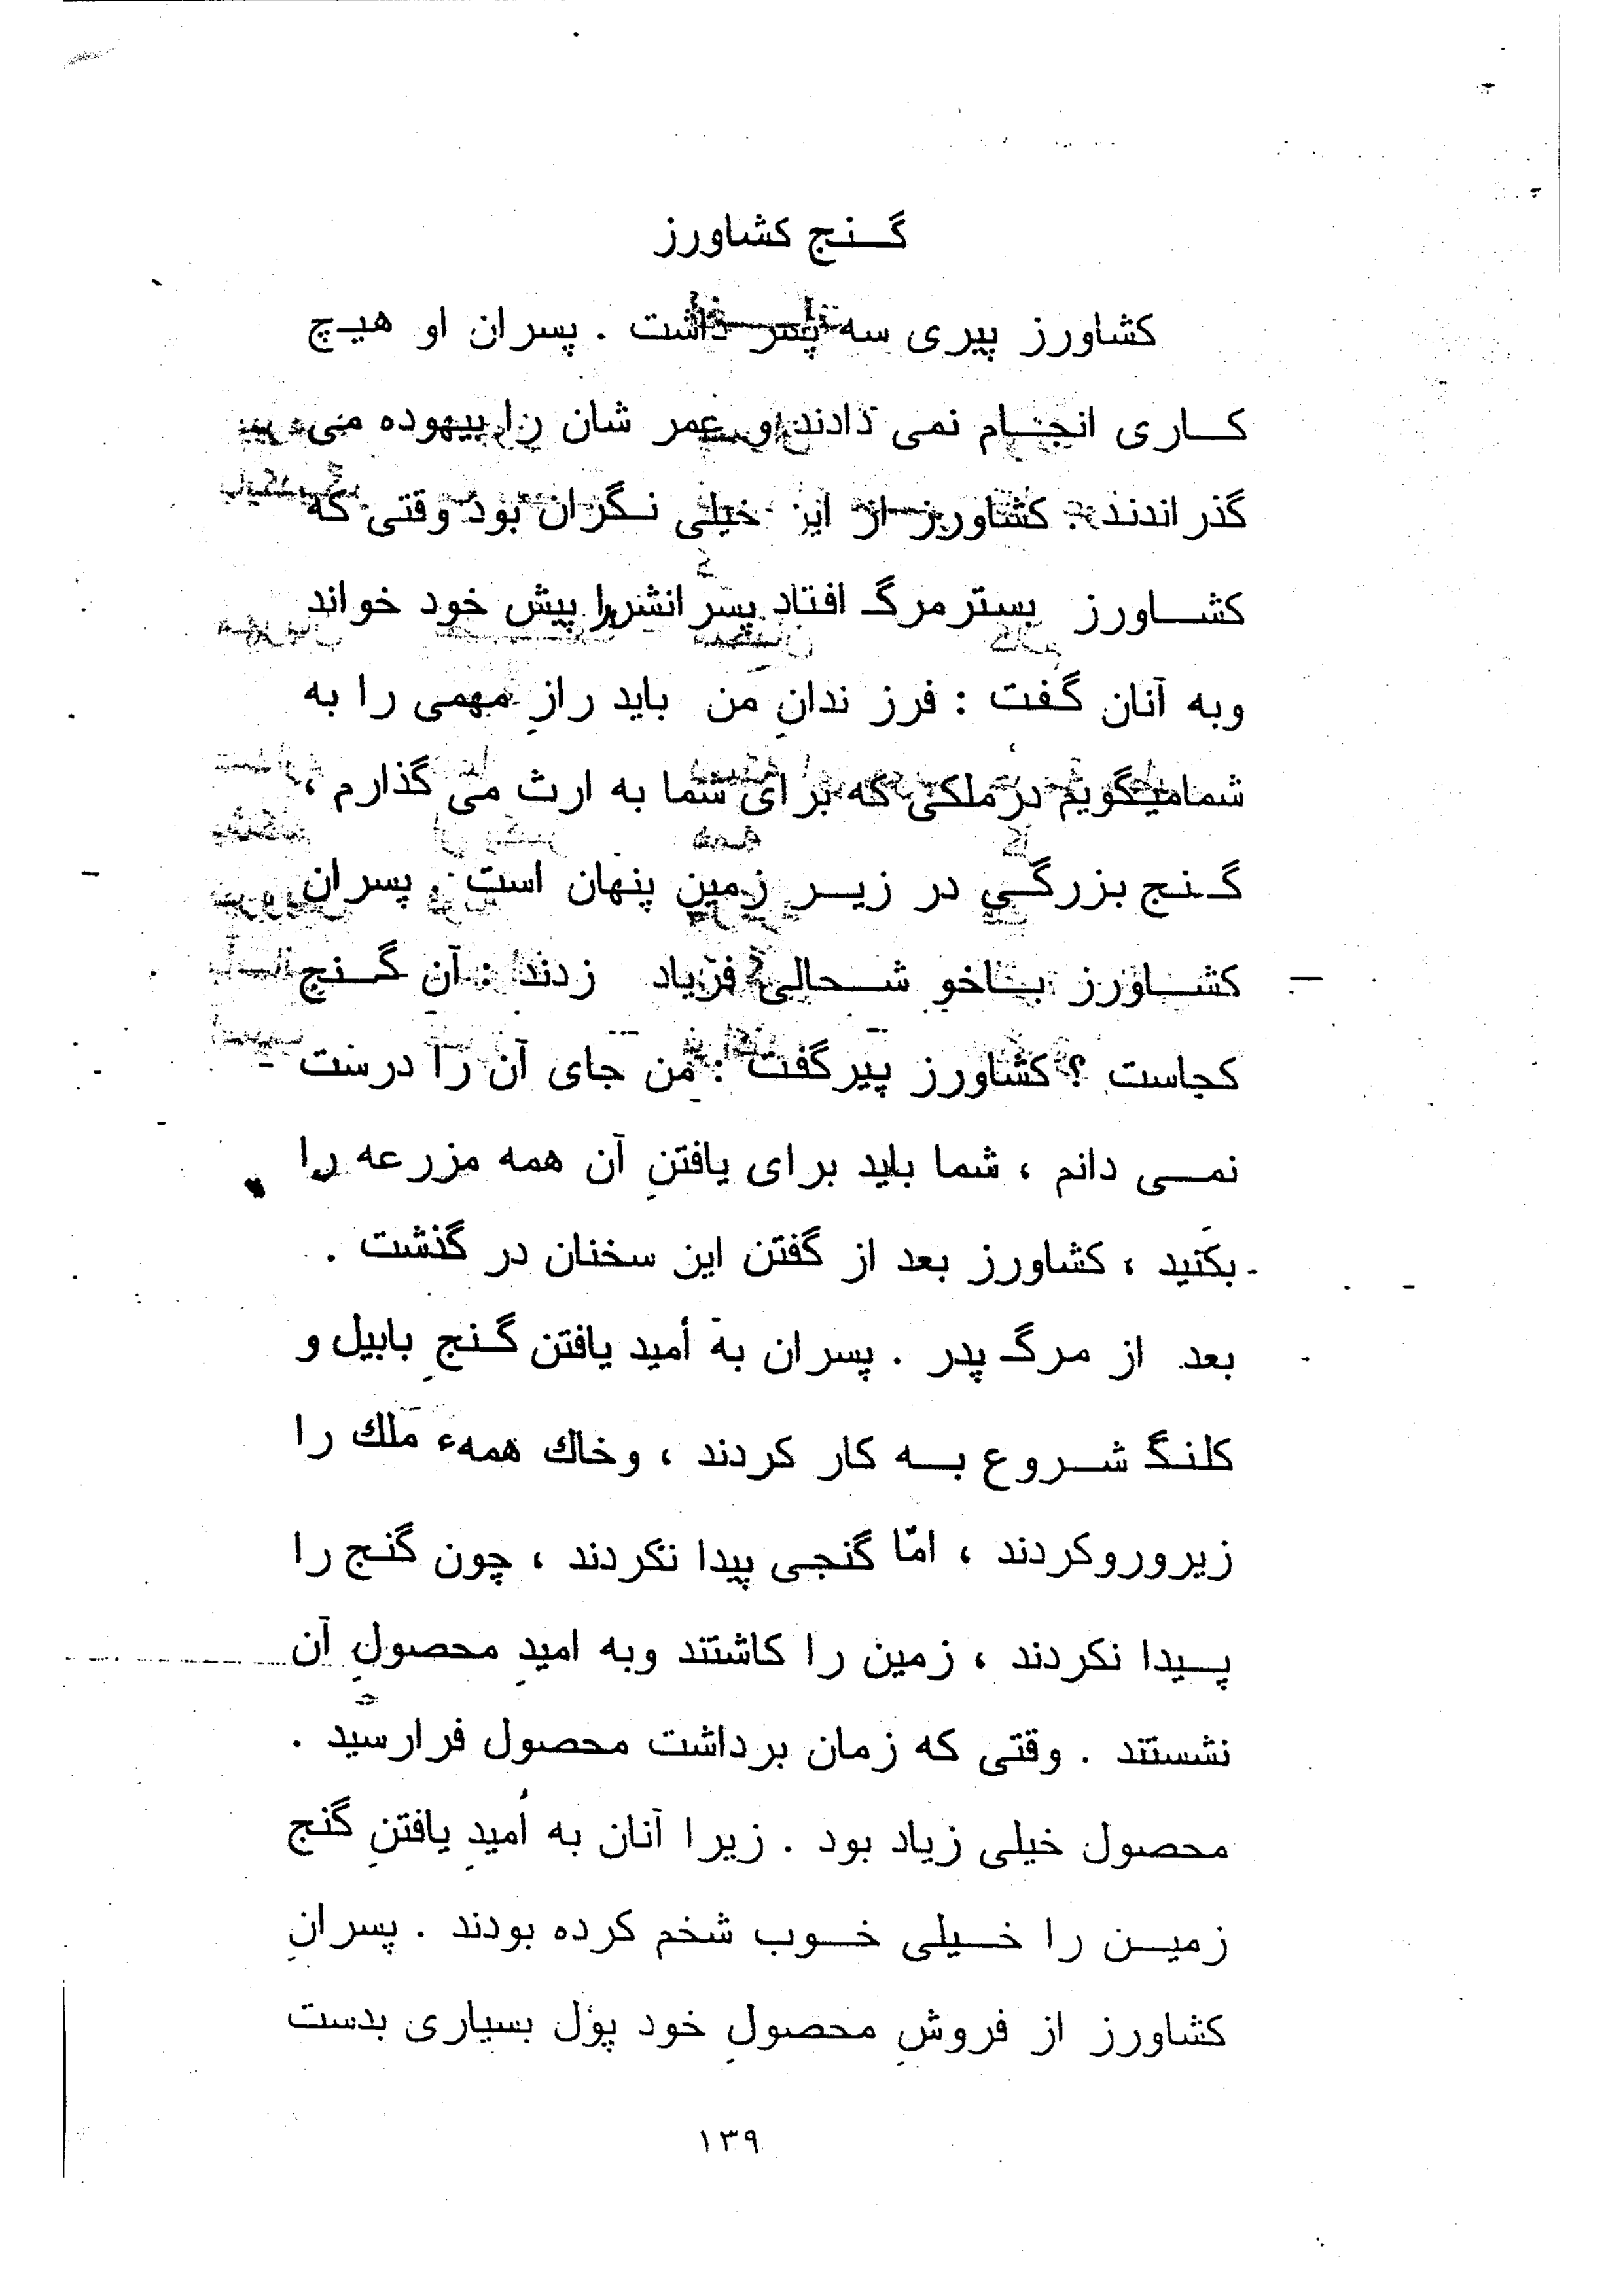 گنج کشاورز
کشاورز پیری سه پسر داشت . پسران او هیچ
کاری انجام نمی دادند و عمر شان را بیهوده می
گذراندند . کشاورز از این خیلی نگران بود وقتی که
کشاورز بسترمرگ افتاد پسرانش را پیش خود خواند
وبه آنان گفت : فرز ندانِ من باید رازِ مهمی را به
شمامیگویم درملکی که برای شما به ارث می گذارم ،
گنج بزرگی در زیر زمین پنهان است . پسران
کشاورز باخو شحالی فریاد زدند : آن گنج
کجاست ؟ کشاورز پیرگفت : من جای آن را درست -
نمی دانم ، شما باید برای یافتنِ آن همه مزرعه را
بکَنید ، کشاورز بعد از گفتن این سخنان در گذشت .
بعد از مرگ پدر . پسران به أمید یافتن گنجِ بابیل و
کلنگ شروع به کار کردند ، وخاك همهء ملك را
زیروروکردند ، امّا گنجی پیدا نکردند ، چون گنج را
پیدا نکردند ، زمین را کاشتند وبه امیدِ محصولِ آن
نشستند . وقتی که زمان برداشت محصول فرارسید .
محصول خیلی زیاد بود . زیرا آنان به اُمیدِ یافتنِ گنج
زمین را خیلی خوب شخم کرده بودند . پسرانِ
کشاورز از فروشِ محصولِ خود پول بسیاری بدست
۱۳۹